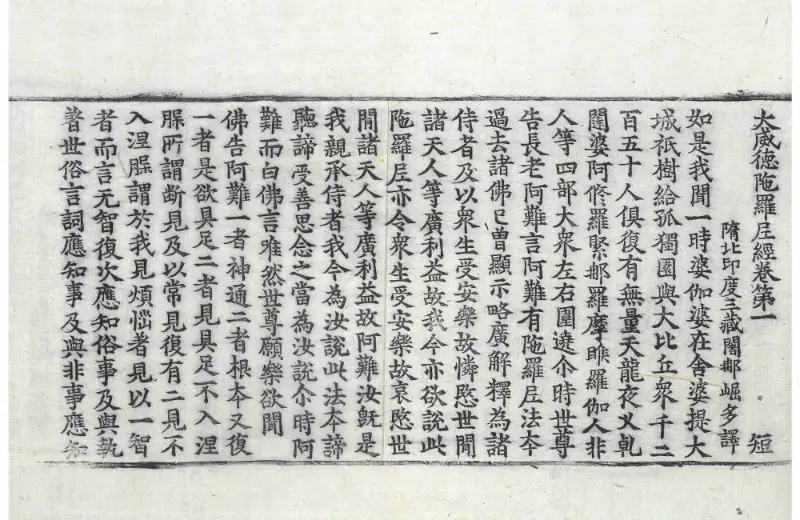 大威德陁羅尼經卷第一 短
隋北印度三藏闍那崛多譯
如是我聞一時婆伽婆在舍婆提大
城祇樹給孤獨園與大比丘衆千二
百五十人俱復有無量天龍夜叉乹
闥婆阿脩羅緊那羅摩睺羅伽人非
人等四部大衆左右圍遶尒時世尊
告長老阿難言阿難有陁羅尼法本
過去諸佛已曾顯示略廣解釋為諸
侍者及以衆生受安樂故憐愍世間
諸天人等廣利益故我今亦欲說此
陁羅尼亦令衆生受安樂故哀愍世
間諸天人等廣利益故阿難汝旣是
我親承侍者我今為汝說此法本諦
聽諦受善思念之當為汝說尒時阿
難而白佛言唯然世尊願樂欲聞
佛告阿難一者神通二者根本又復
一者是欲具足二者見具足不入涅
槃所謂断見及以常見復有二見不
入涅槃謂於我見煩惱著見以一智
者而言无智復次應知俗事及與執
著世俗言詞應知事及與非事應知